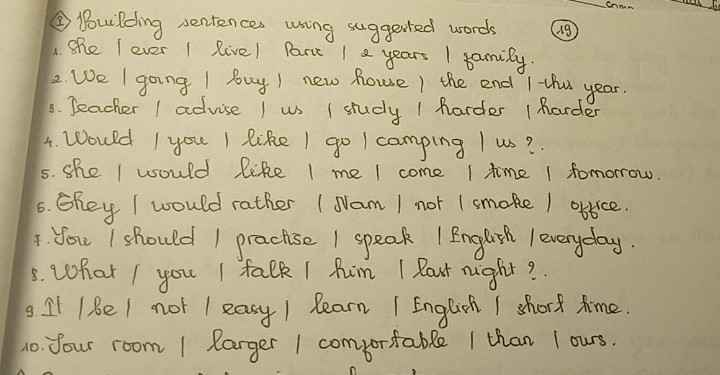 ② Building sentences using suggested words (19)
1. She / ever / live / Paris / 2 years / family.
2. We / going / buy / new house / the end / this year.
3. Teacher / advise / us / study / harder / harder
4. Would / you / like / go / camping / us ?.
5. She / would like / me / come / time / tomorrow.
6. They / would rather / Nam / not / smoke / office.
7. You / should / practise / speak / English / everyday.
8. What / you / talk / him / last night ?.
9. It / be / not / easy / learn / English / short time.
10. Your room / larger / comfortable / than / ours.